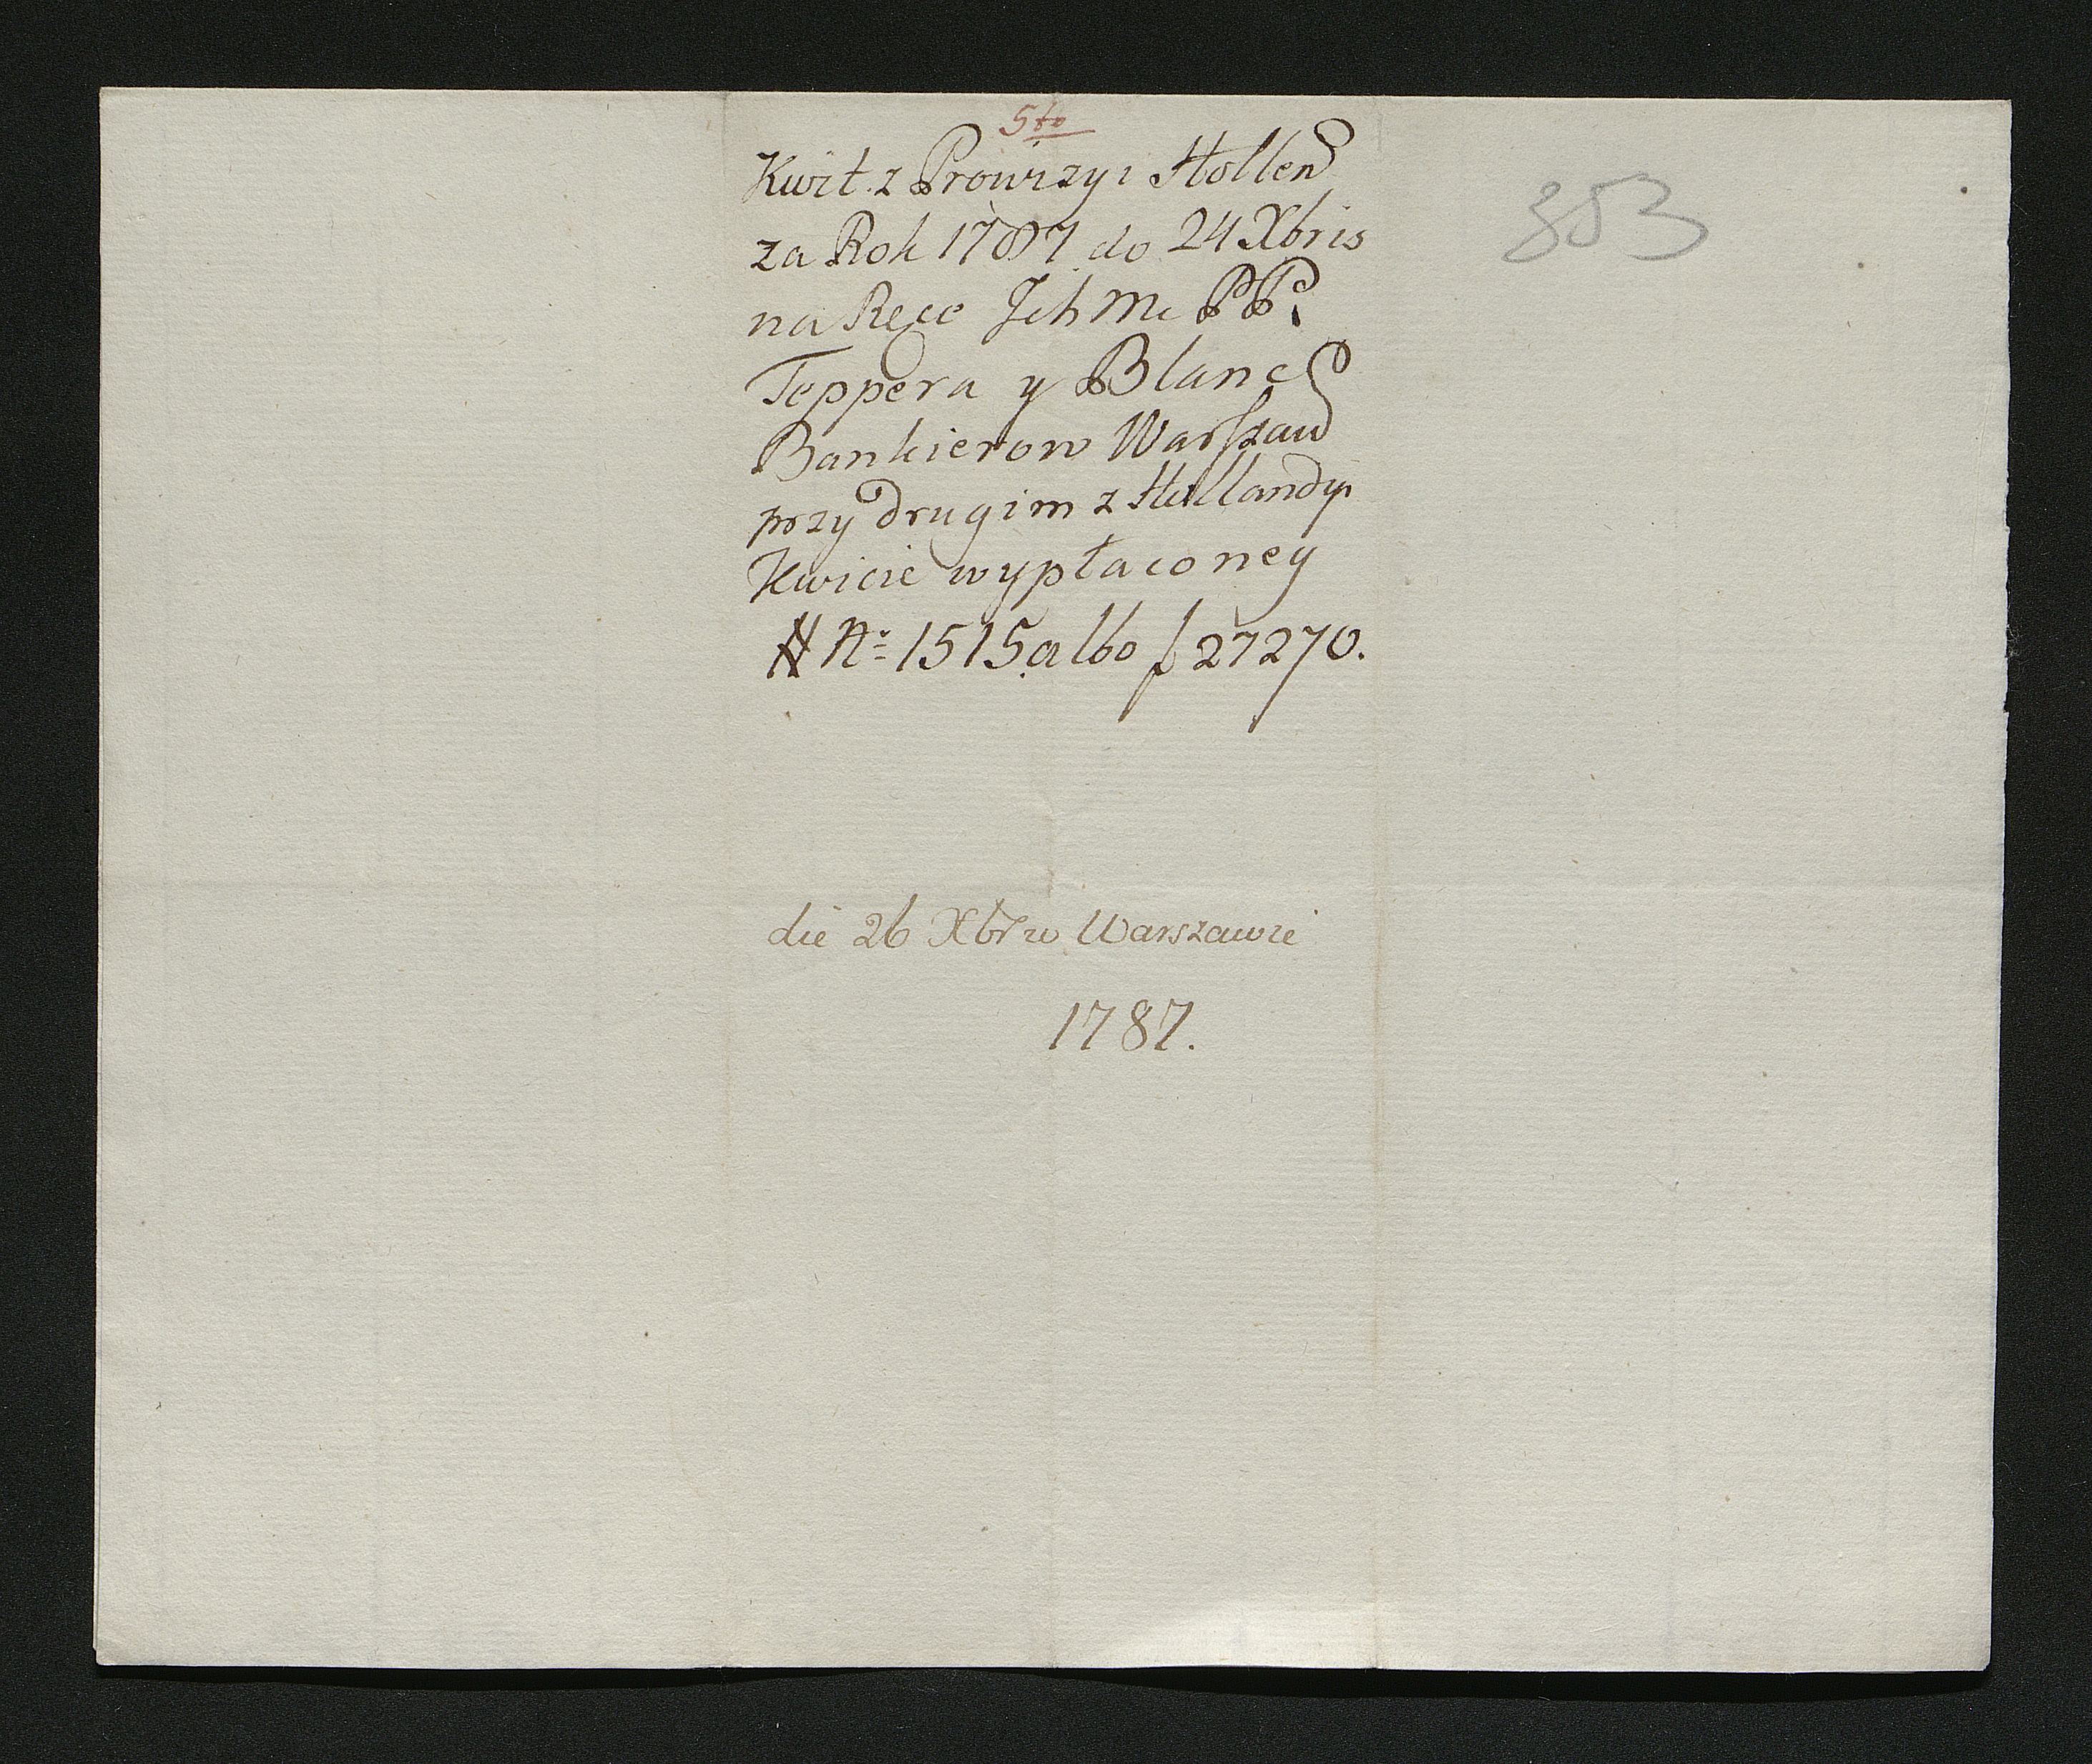 5to
353
Kwit z Prowizyi Hollend
za Rok 1787 do 24 Xbris
na Ręce Jch Mc PP.
Teppera y Blanc
Bankierow Warszaw
przy drugim z Hollandyi
Kwicie wypłaconey
# No: 1515 albo f 27270.
die 26 Xbr w Warszawie
1787.